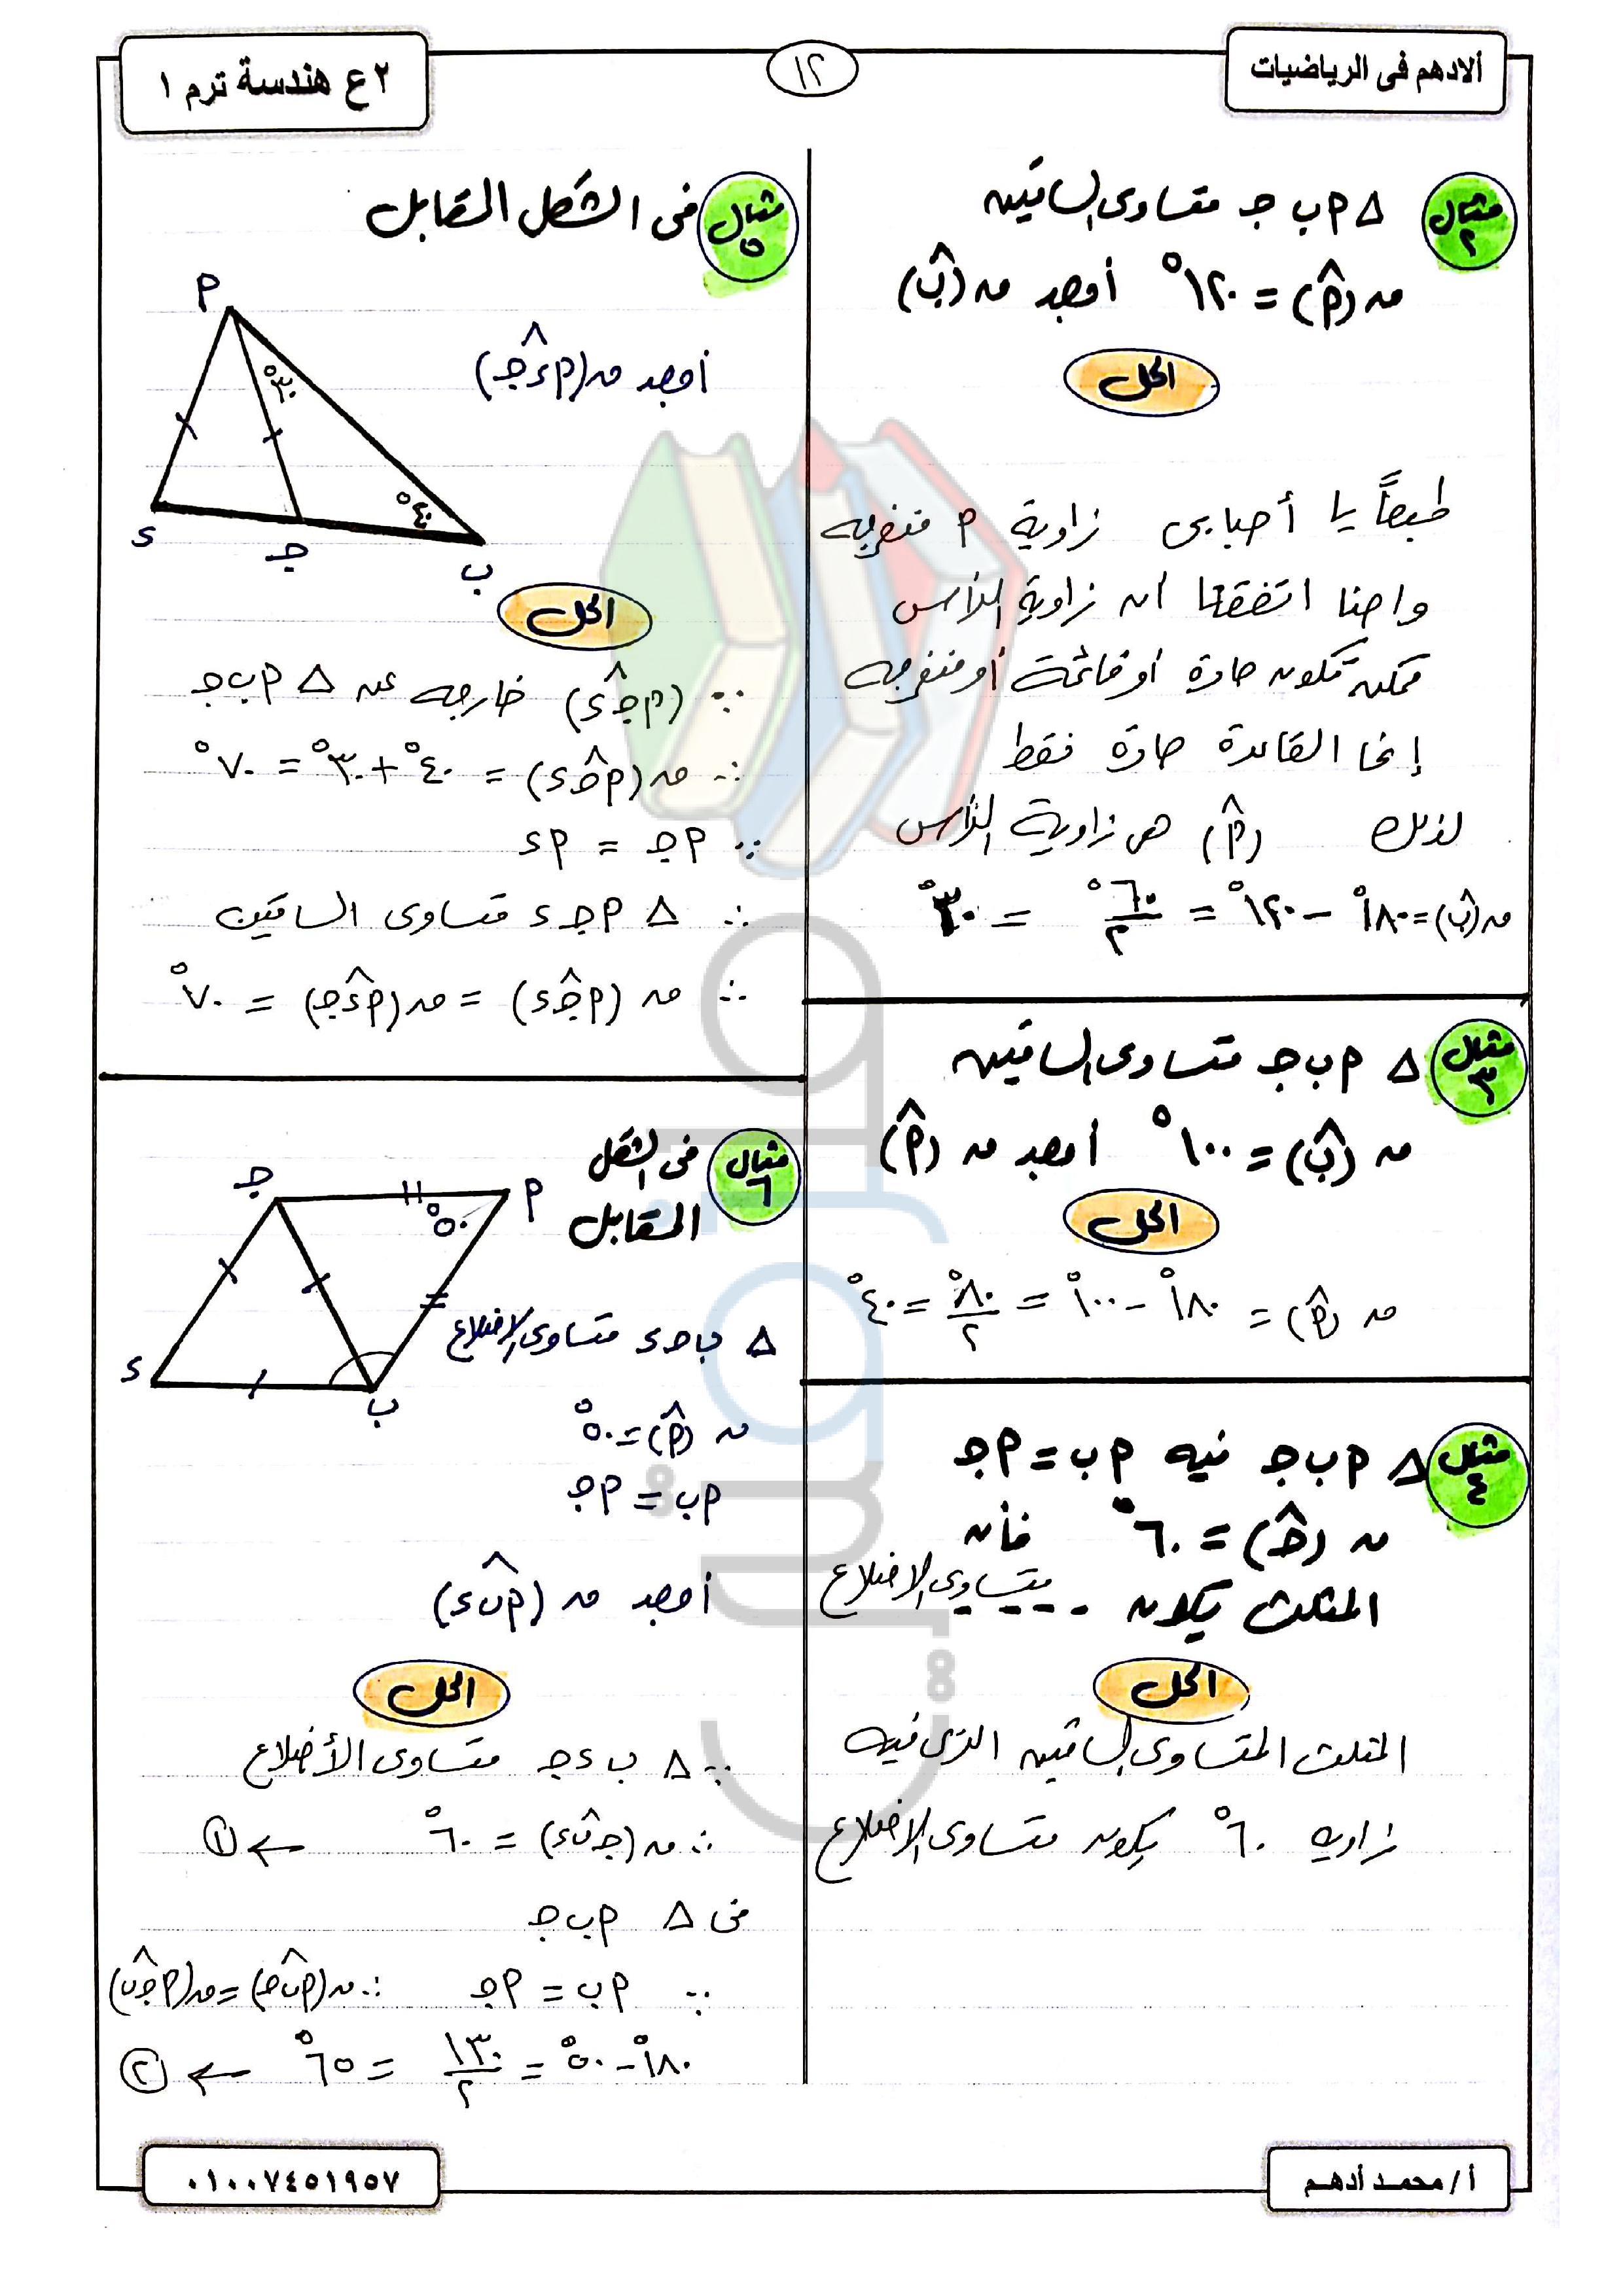 ألادهم فى الرياضيات
١٢
٢ع هندسة ترم ١
مثال ٢
Δ م ب جـ متساوى الساقين
ﻕ(م̂) = ١٢٠° أوجد ﻕ(ب̂)
الحل
طبعاً يا أحبابى زاوية م منفرجه
واحنا اتفقنا ان زاوية الرأس
ممكن تكون حادة أو قائمة أو منفرجه
إنما القاعدة حادة فقط
لذلك (م̂) هى زاوية الرأس
ﻕ(ب̂) = ١٨٠° - ١٢٠° = ٦٠°/٢ = ٣٠°
مثال ٣
Δ م ب جـ متساوى الساقين
ﻕ(ب̂) = ١٠٠° أوجد ﻕ(م̂)
الحل
ﻕ(م̂) = ١٨٠° - ١٠٠° = ٨٠°/٢ = ٤٠°
مثال ٤
Δ م ب جـ فيه م ب = م جـ
ﻕ(جـ̂) = ٦٠° فأن
المثلث يكون متساوى الاضلاع
الحل
المثلث المتساوى الساقين الذى فيه
زاويه ٦٠° يكون متساوى الاضلاع
مثال ٥
فى الشكل المقابل
أوجد ﻕ(م ء̂ جـ)
م
٣٠°
٤٠°
ء
جـ
ب
الحل
∵ (م جـ̂ ء) خارجه عن Δ م ب جـ
∴ ﻕ(م جـ̂ ء) = ٤٠° + ٣٠° = ٧٠°
∵ م جـ = م ء
∴ Δ م جـ ء متساوى الساقين
∴ ﻕ(م جـ̂ ء) = ﻕ(م ء̂ جـ) = ٧٠°
مثال ٦
فى الشكل
المقابل
جـ
م
٥٠°
ء
ب
Δ ب جـ ء متساوى الاضلاع
ﻕ(م̂) = ٥٠°
م ب = م جـ
أوجد ﻕ(م ب̂ ء)
الحل
∵ Δ ب ء جـ متساوى الأضلاع
∴ ﻕ(جـ ب̂ ء) = ٦٠° ← ①
فى Δ م ب جـ
∵ م ب = م جـ ∴ ﻕ(م ب̂ جـ) = ﻕ(م جـ̂ ب)
١٨٠° - ٥٠° = ١٣٠/٢ = ٦٥° ← ②
أ/ محمد أدهم
٠١٠٠٧٤٥١٩٥٧